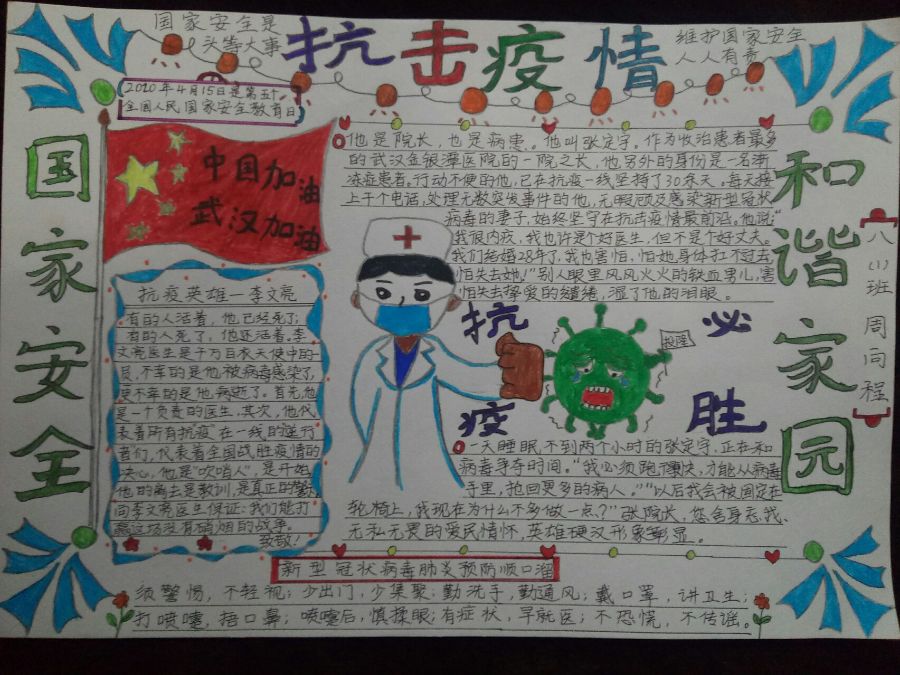 国家安全是
头等大事
抗击疫情
维护国家安全
人人有责
2020年4月15日是第五个
全国人民国家安全教育日
国家安全
和谐家园
八(1)班 周同程
中国加油
武汉加油
抗疫英雄—李文亮
有的人活着,他已经死了;
有的人死了,他还活着。李
文亮医生是千万白衣天使中的一
员,不幸的是他被病毒感染了,
更不幸的是他病逝了。首先,他
是一个负责的医生,其次,他代
表着所有抗疫在一线的逆行
者们,代表着全国战胜疫情的
决心,他是“吹哨人”,是开始,
他的离去是教训,是真正的
向李文亮医生保证:我们能打
赢这场没有硝烟的战争。
致敬!
他是院长,也是病患。他叫张定宇。作为收治患者最多
的武汉金银潭医院的一院之长,他另外的身份是一名渐
冻症患者。行动不便的他,已在抗疫一线坚持了30余天。每天接
上千个电话,处理无数突发事件的他,无暇顾及感染新型冠状
病毒的妻子,始终坚守在抗击疫情最前沿。他说:“
我很内疚,我也许是个好医生,但不是个好丈夫。
我们结婚28年了,我也害怕,怕她身体扛不过去,
怕失去她!”别人眼里风风火火的铁血男儿,害
怕失去挚爱的缱绻,湿了他的泪眼。
抗疫
必胜
投降
一天睡眠不到两个小时的张定宇,正在和
病毒争夺时间。“我必须跑得更快,才能从病毒
手里,抢回更多的病人。”“以后我会被固定在
轮椅上,我现在为什么不多做一点?”张院长,您舍身忘我、
无私无畏的爱民情怀,英雄硬汉形象彰显。
新型冠状病毒肺炎预防顺口溜
须警惕,不轻视;少出门,少集聚;勤洗手,勤通风;戴口罩,讲卫生;
打喷嚏,捂口鼻;喷嚏后,慎揉眼;有症状,早就医;不恐慌,不传谣。